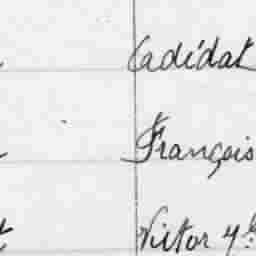 Cadidat
François
Victor